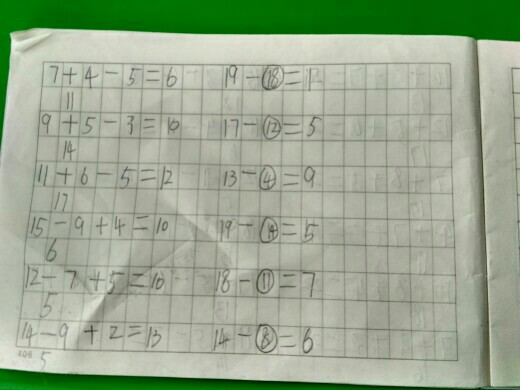 7+4-5=6 19-⑱=1
11
9+5-3=10 17-⑫=5
14
11+6-5=12 13-④=9
17
15-9+4=10 19-⑭=5
6
12-7+5=10 18-⑪=7
5
14-9+2=13 14-⑧=6
5